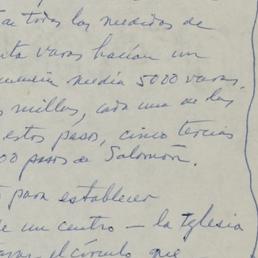 todas las medidas de
varas hacían un
media 5000 varas.
millas, cada una de las
estos pasos, cinco tercias
00 pasos de Salomón.
para establecer
de un centro — la Iglesia
el círculo que